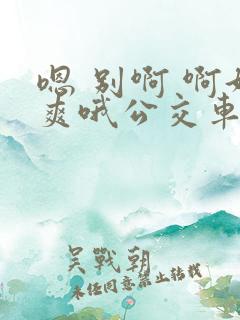 嗯 别啊 啊好
爽哦公交车
吴战朝
未经同意禁止转载